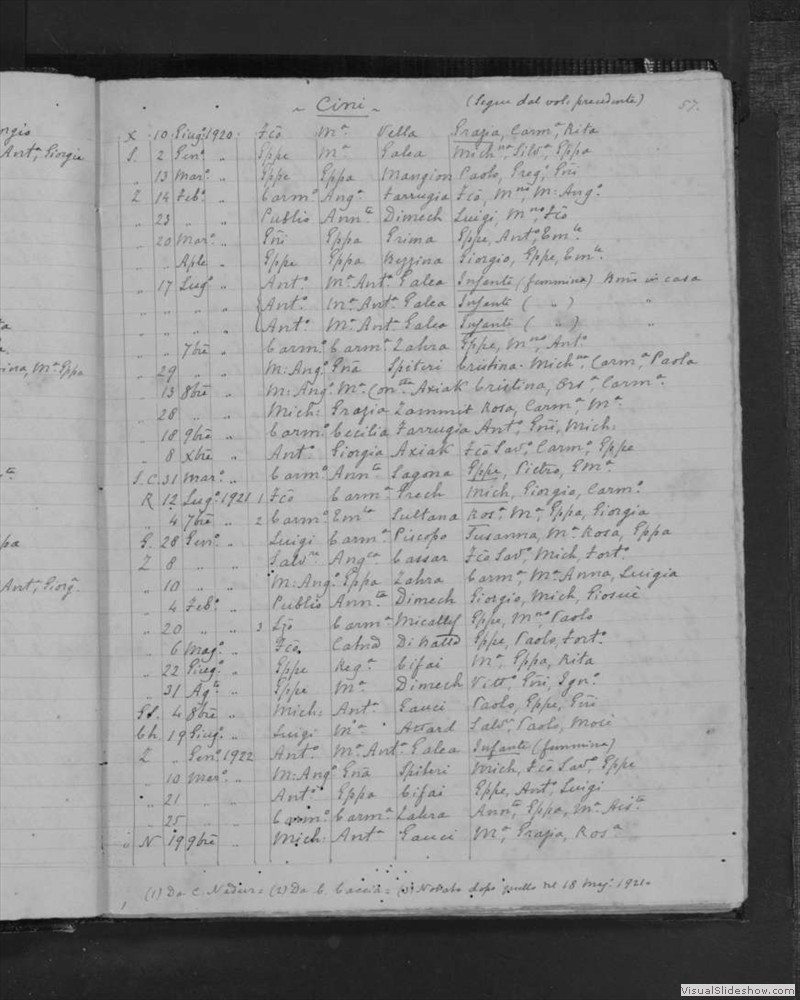 orgio
Anta, Giorgia
ina, Ma Eppa
ppa
Anta, Giorg.
~ Cini ~ (Segue dal vol. precedente) 57.
X 10 Giug. 1920 Fco Ma Vella Grazia, Carma, Rita
S. 2 Gen. " Gppe Ma Galea Michna, Salv., Eppa
" 13 Mar. " Gppe Eppa Mangion Paolo, Greg., Gni
Z 14 Feb. " Carmo Anga Farrugia Fco, Mno, M. Ango
" 23 " " Publio Annta Dimech Luigi, Mno, Fco
" 20 Mar. " Gni Eppa Grima Gppe, Anto, Emle
" " Aple " Gppe Eppa Bezzina Giorgio, Gppe, Emle
" 17 Lug. " Anto Ma Anta Galea Infante (femmina) in casa
" " " " Anto Ma Anta Galea Infante ( " ) "
" " " " Anto Ma Anta Galea Infante ( " ) "
" " 7bre " Carmo Carma Zahra Gppe, Mno, Anto
" 29 " " M. Ango Gna Spiteri Cristina, Michna, Carma, Paola
" 13 8bre " M. Ango Ma Conta Axiak Cristina, Orsa, Carma
" 28 " " Mich: Grazia Zammit Rosa, Carma, Ma
" 18 9bre " Carmo Cecilia Farrugia Anto, Gni, Mich:
" 8 Xbre " Anto Giorgia Axiak Fco Savo, Carmo, Gppe
S.C. 31 Mar. " Carmo Annta Lagona Gppe, Pietro, Gma
R 12 Lug. 1921 1 Fco Carma Grech Mich, Giorgio, Carmo
" 4 7bre " 2 Carmo Emla Sultana Rosa, Ma, Eppa, Giorgia
G. 28 Gen. " Luigi Carma Piscopo Susanna, Ma Rosa, Eppa
Z 8 " " Salvre Angca Cassar Fco Savo, Mich, Forto
" 10 " " M. Ango Eppa Zahra Carma, Ma Anna, Luigia
" 4 Feb. " Publio Annta Dimech Giorgio, Mich, Giosue
" 20 " " 3 Ljo Carma Micallef Gppe, Mno, Paolo
" 6 Mag. " Fco. Catna Di Natto Gppe, Paolo, Forto
" 22 Giug. " Gppe Rega Cifai Ma, Eppa, Rita
" 31 Ag. " Gppe Ma Dimech Vitto, Gni, Igno
Gd. 4 8bre " Mich: Anta Gauci Paolo, Gppe, Gni
Ch. 19 Giug. " Luigi Ma Attard Salv., Paolo,
Z " Gen. 1922 Anto Ma Anta Galea Infante (femmina)
" 10 Mar. " M. Ango Gna Spiteri Mich, Fco Savo, Gppe
" 21 " " Anto Eppa Cifai Gppe, Anto, Luigi
" 25 " " Carmo Carma Zahra Annta, Eppa, Ma
N 19 9bre " Mich: Anta Gauci Ma, Grazia, Rosa
(1) Da C. Nadur = (2) Da C. Caccia = (3) Notato dopo quello del 18 Mag. 1921.
VisualSlideshow.com